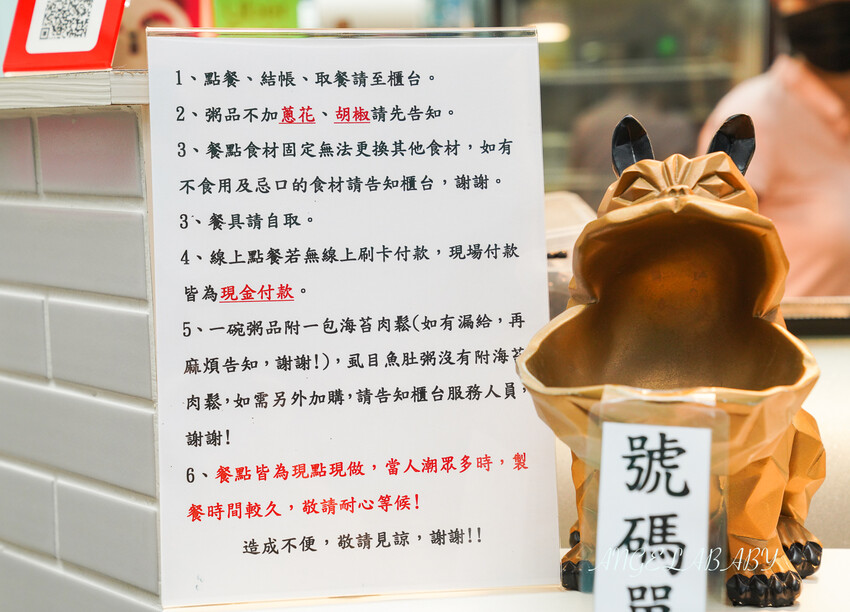 1、點餐、結帳、取餐請至櫃台。
2、粥品不加蔥花、胡椒請先告知。
3、餐點食材固定無法更換其他食材，如有
不食用及忌口的食材請告知櫃台，謝謝。
3、餐具請自取。
4、線上點餐若無線上刷卡付款，現場付款
皆為現金付款。
5、一碗粥品附一包海苔肉鬆(如有漏給，再
麻煩告知，謝謝!)，虱目魚肚粥沒有附海苔
肉鬆，如需另外加購，請告知櫃台服務人員，
謝謝!
6、餐點皆為現點現做，當人潮眾多時，製
餐時間較久，敬請耐心等候!
造成不便，敬請見諒，謝謝!!
號碼單
ANGELABABY